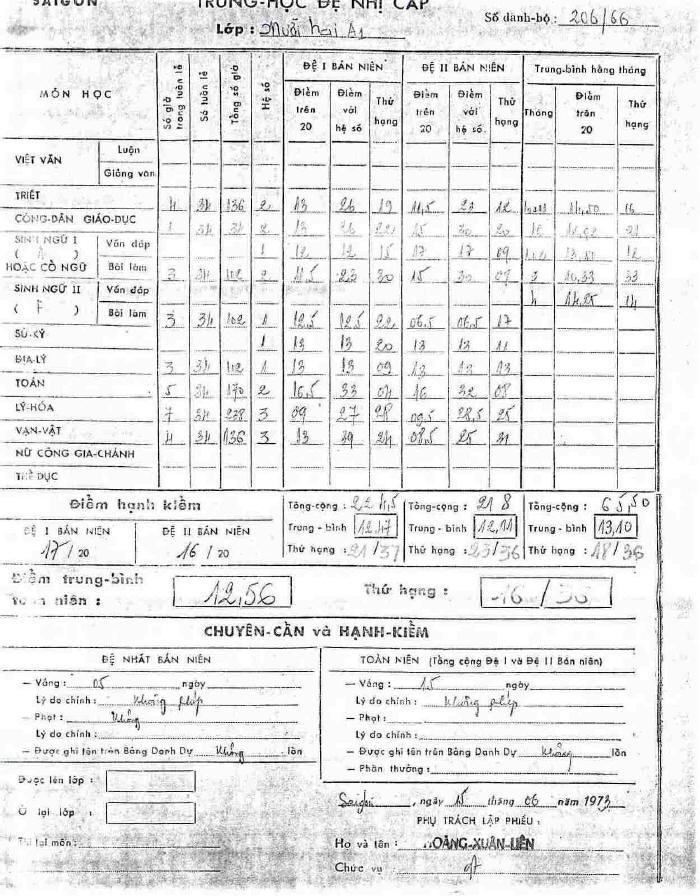 SAIGON TRUNG-HỌC ĐỆ NHỊ CẤP
Lớp : Mười hai A1
Số danh-bộ: 206/66
MÔN HỌC Số giờ trong tuần lễ Số tuần lễ Tổng số giờ Hệ số ĐỆ I BÁN NIÊN ĐỆ II BÁN NIÊN Trung-bình hàng tháng
Điểm trên 20 Điểm với hệ số Thứ hạng Điểm trên 20 Điểm với hệ số Thứ hạng Tháng Điểm trên 20 Thứ hạng
VIỆT VĂN Luận
Giảng văn
TRIẾT 4 34 136 2 13 26 19 11,5 23 12 14,50 16
CÔNG-DÂN GIÁO-DỤC 1 34 34 2 13 26 22 15 30 20
SINH NGỮ I Vấn đáp 1 12 12 15 17 17 09
HOẶC CỔ NGỮ Bài làm 3 34 102 2 11.5 23 30 15 30 07 3 10,33 33
SINH NGỮ II Vấn đáp 14,25 14
( F ) Bài làm 3 34 102 1 12.5 12.5 22 06.5 06.5 17
SỬ-KÝ 1 13 13 20 13 13 11
ĐỊA-LÝ 3 34 102 1 13 13 09 13 13 13
TOÁN 5 34 170 2 16,5 33 04 16 32 08
LÝ-HÓA 7 34 238 3 09 27 28 09,5 28,5 25
VẠN-VẬT 4 34 136 3 13 39 24 08,5 25 31
NỮ CÔNG GIA-CHÁNH
THỂ DỤC
Điểm hạnh kiểm
ĐỆ I BÁN NIÊN ĐỆ II BÁN NIÊN
17/20 16/20
Tổng-cộng : 224,5 Tổng-cộng : 218 Tổng-cộng : 65,50
Trung-bình 12,47 Trung-bình 12,11 Trung-bình 13,10
Thứ hạng : 21/37 Thứ hạng : 23/36 Thứ hạng : 18/36
Điểm trung-bình
toàn niên : 12,56 Thứ hạng : 16/36
CHUYÊN-CẦN và HẠNH-KIỂM
ĐỆ NHẤT BÁN NIÊN
— Vắng : 05 ngày
Lý do chính : Không phép
— Phạt : Không
Lý do chính :
— Được ghi tên trên Bảng Danh Dự Không lần
TOÀN NIÊN (Tổng cộng Đệ I và Đệ II Bán niên)
— Vắng : 15 ngày
Lý do chính : Không phép
— Phạt :
Lý do chính :
— Được ghi tên trên Bảng Danh Dự Không lần
— Phần thưởng :
Được lên lớp :
Ở lại lớp :
Thi lại môn :
Saigon, ngày 15 tháng 06 năm 1973
PHỤ TRÁCH LẬP PHIẾU :
Họ và tên : HOÀNG-XUÂN-LIÊN
Chức vụ